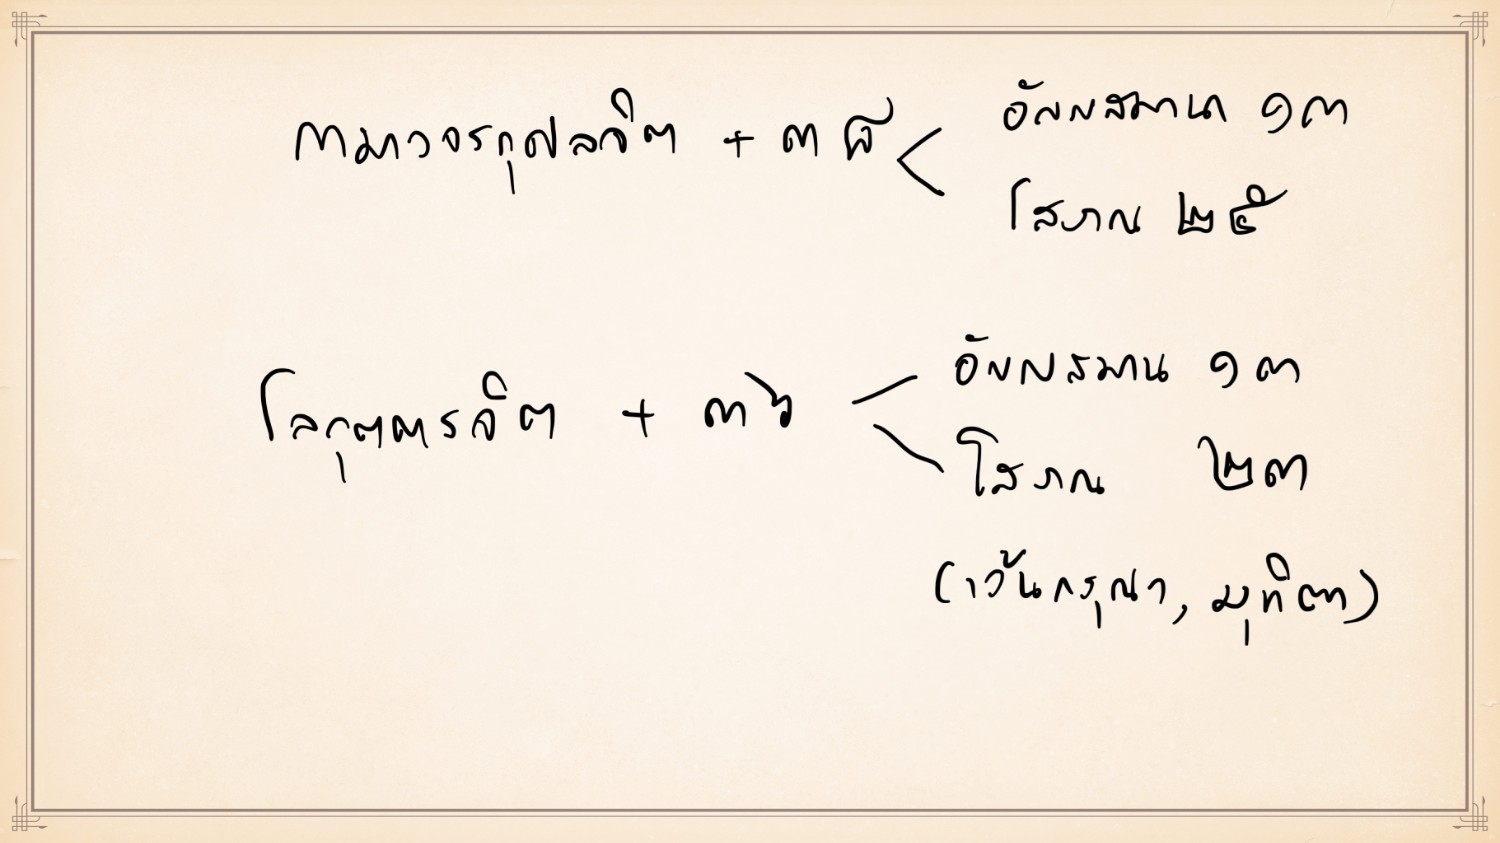 กามาวจรกุศลจิต + ๓๘
อัญญสมานา ๑๓
โสภณ ๒๕
โลกุตตรจิต + ๓๖
อัญญสมาน ๑๓
โสภณ ๒๓
(เว้นกรุณา, มุทิตา)